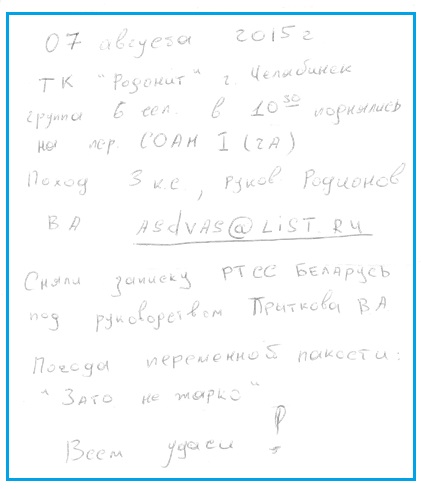 07 августа 2015г
ТК "Родонит" г. Челябинск
группа 6 чел. в 10 30 поднялись
на пер. СОАН I (2А)
Поход 3 к.с, руков Родионов
ВА asdvas@list.ru
Сняли записку РТСС Беларусь
под руководством Приткова ВА
Погода переменной пакости:
"Зато не жарко"
Всем удачи!